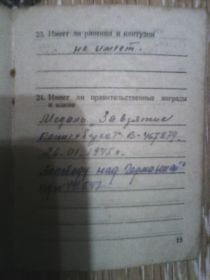 23. Имеет ли ранения и контузии
не имеет.
24. Имеет ли правительственные награды
и какие
Медаль „За взятие
26.01.1945 г.
победу над Германией"
13